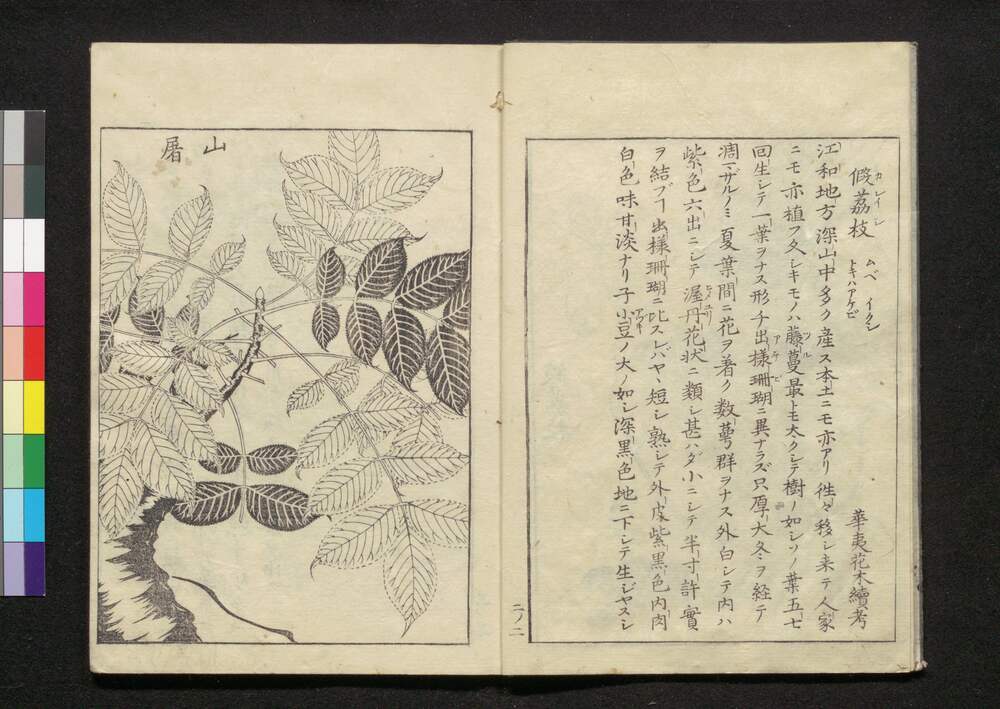 假茘枝 ムベ イクシ 華夷花木續考
カレイシ
トキハアケビ
江和地方深山中多ク産ス本土ニモ亦アリ徃々移シ来テ人家
ニモ亦植フ久シキモノハ藤蔓最トモ太クシテ樹ノ如シソノ葉五七
ツル
回生シテ一葉ヲナス形チ出様珊瑚ニ異ナラズ只厚大冬ヲ経テ
アケビ
凋マザルノミ夏葉間ニ花ヲ着ク数蕚群ヲナス外白シテ内ハ
紫色六出ニシテ渥丹花状ニ類シ甚ハダ小ニシテ半寸許實
ヒメユリ
ヲ結ブ出様珊瑚ニ比スレバヤヽ短シ熟シテ外皮紫黒色内肉
白色味甘淡ナリ子小豆ノ大ノ如シ深黒色地ニ下シテ生ジヤスシ
アヅキ
二ノ二
山屠